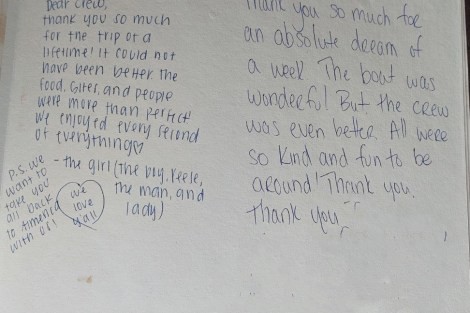 Dear Crew,
thank you so much
for the trip of a
lifetime! It could not
have been better The
food, sites, and people
were more than perfect
We enjoyed every second
of everything♡
- the girl (the boy, Keele,
the man, and
lady)
P.S. we
want to
take you
all back
to America
with us!
we
love
y'all
Thank you so much for
an absolute dream of
a week The boat was
wonderful But the crew
was even better. All were
so kind and fun to be
around! Thank you.
Thank you